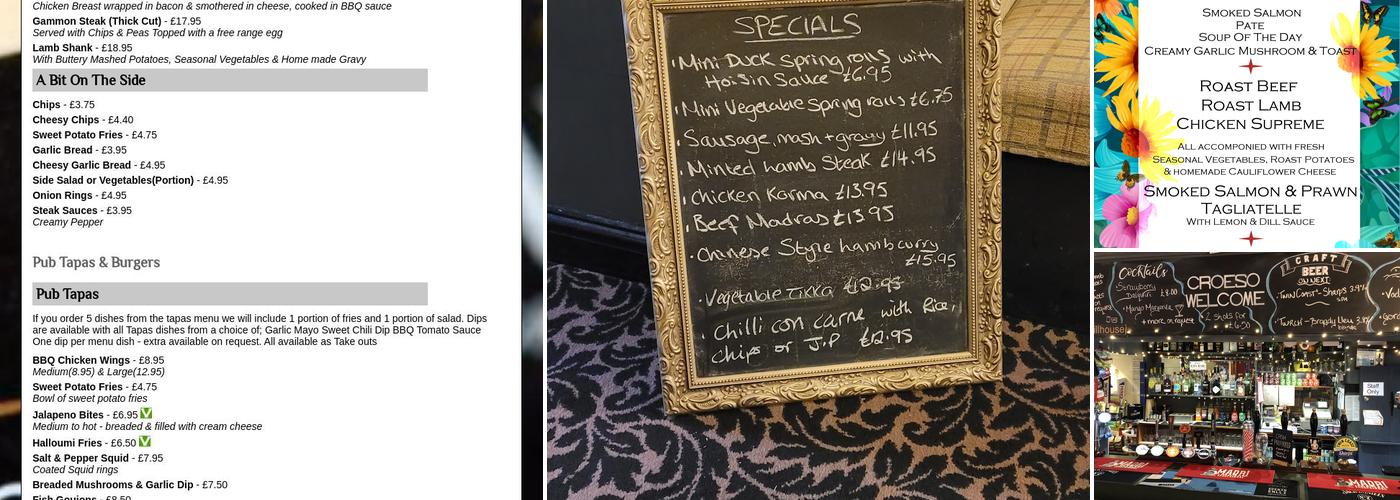 Chicken Breast wrapped in bacon & smothered in cheese, cooked in BBQ sauce
Gammon Steak (Thick Cut) - £17.95
Served with Chips & Peas Topped with a free range egg
Lamb Shank - £18.95
With Buttery Mashed Potatoes, Seasonal Vegetables & Home made Gravy
A Bit On The Side
Chips - £3.75
Cheesy Chips - £4.40
Sweet Potato Fries - £4.75
Garlic Bread - £3.95
Cheesy Garlic Bread - £4.95
Side Salad or Vegetables(Portion) - £4.95
Onion Rings - £4.95
Steak Sauces - £3.95
Creamy Pepper
Pub Tapas & Burgers
Pub Tapas
If you order 5 dishes from the tapas menu we will include 1 portion of fries and 1 portion of salad. Dips
are available with all Tapas dishes from a choice of; Garlic Mayo Sweet Chili Dip BBQ Tomato Sauce
One dip per menu dish - extra available on request. All available as Take outs
BBQ Chicken Wings - £8.95
Medium(8.95) & Large(12.95)
Sweet Potato Fries - £4.75
Bowl of sweet potato fries
Jalapeno Bites - £6.95
Medium to hot - breaded & filled with cream cheese
Halloumi Fries - £6.50
Salt & Pepper Squid - £7.95
Coated Squid rings
Breaded Mushrooms & Garlic Dip - £7.50
Fish Goujons - £8.50
SPECIALS
Mini Duck Spring rolls with
Hoi-Sin Sauce £6.95
Mini Vegetable Spring rolls £6.75
Sausage, mash + gravy £11.95
Minted Lamb Steak £14.95
Chicken Korma £13.95
Beef Madras £13.95
Chinese Style Lamb curry
£15.95
Vegetable Tikka £12.95
Chilli con carne with Rice,
Chips or J.P £12.95
SMOKED SALMON
PATE
SOUP OF THE DAY
CREAMY GARLIC MUSHROOM & TOAST
ROAST BEEF
ROAST LAMB
CHICKEN SUPREME
ALL ACCOMPONIED WITH FRESH
SEASONAL VEGETABLES, ROAST POTATOES
& HOMEMADE CAULIFLOWER CHEESE
SMOKED SALMON & PRAWN
TAGLIATELLE
WITH LEMON & DILL SAUCE
Cocktails
Strawberry
Daiquiri £8.00
+ more on request
CROESO
WELCOME
2 Shots for
£6.50
CRAFT
BEER
Twin Coast - Sharps 3.9%
Staff
Only
MADRI
MADRI